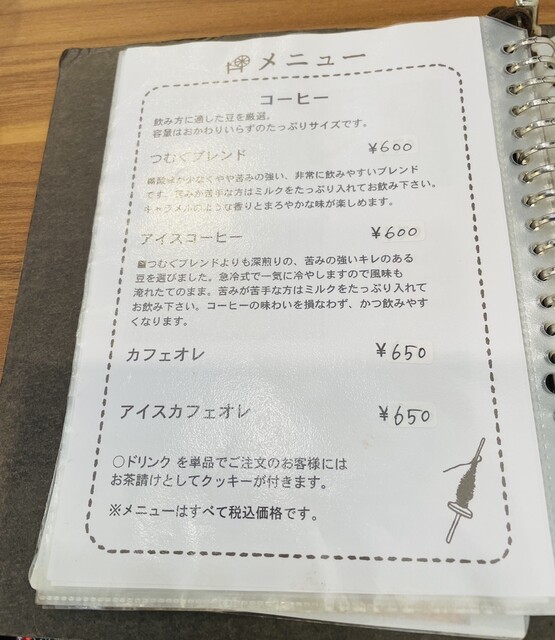 メニュー
コーヒー
飲み方に適した豆を厳選。
容量はおかわりいらずのたっぷりサイズです。
つむぐブレンド ¥600
酸味が少なくやや苦みの強い、非常に飲みやすいブレンド
です。苦みが苦手な方はミルクをたっぷり入れてお飲み下さい。
キャラメルのような香りとまろやかな味が楽しめます。
アイスコーヒー ¥600
つむぐブレンドよりも深煎りの、苦みの強いキレのある
豆を選びました。急冷式で一気に冷やしますので風味も
淹れたてのまま。苦みが苦手な方はミルクをたっぷり入れて
お飲み下さい。コーヒーの味わいを損なわず、かつ飲みやす
くなります。
カフェオレ ¥650
アイスカフェオレ ¥650
○ドリンク を単品でご注文のお客様には
お茶請けとしてクッキーが付きます。
※メニューはすべて税込価格です。